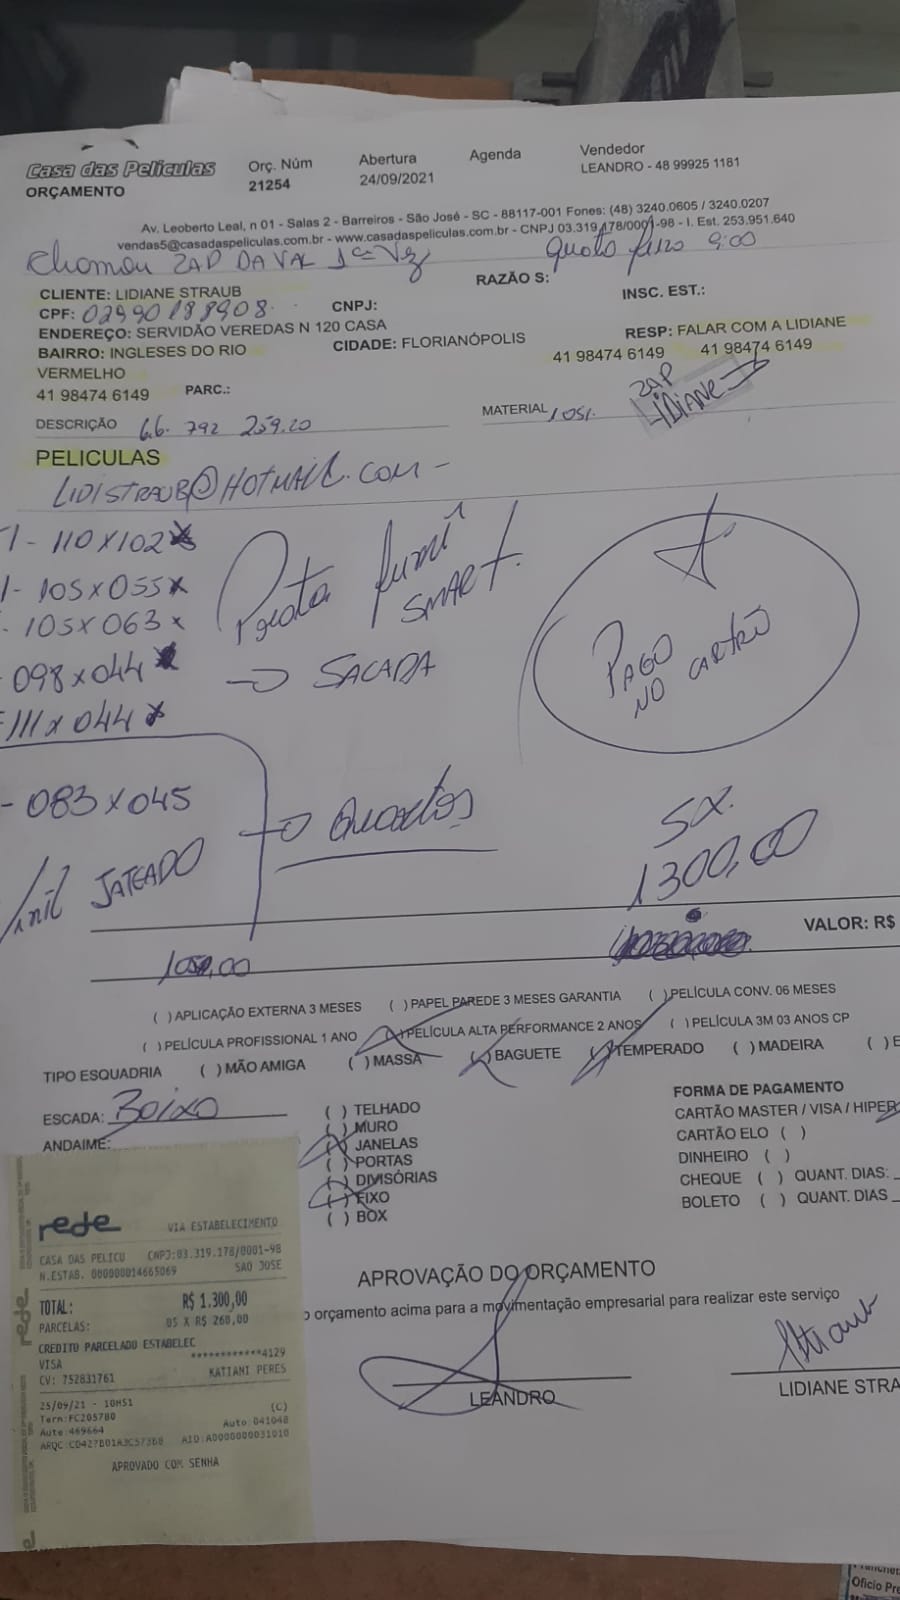 Casa das Películas Orç. Núm Abertura Agenda Vendedor
ORÇAMENTO 21254 24/09/2021 LEANDRO - 48 99925 1181
Av. Leoberto Leal, n 01 - Salas 2 - Barreiros - São José - SC - 88117-001 Fones: (48) 3240.0605 / 3240.0207
vendas5@casadaspeliculas.com.br - www.casadaspeliculas.com.br - CNPJ 03.319.178/0001-98 - I. Est. 253.951.640
Chamou ZAP DA VAL 1ª Vez 9:00
CLIENTE: LIDIANE STRAUB RAZÃO S:
CPF: 02990188908 CNPJ: INSC. EST.:
ENDEREÇO: SERVIDÃO VEREDAS N 120 CASA
BAIRRO: INGLESES DO RIO VERMELHO CIDADE: FLORIANÓPOLIS RESP: FALAR COM A LIDIANE
41 98474 6149 41 98474 6149
41 98474 6149 PARC.: ZAP
LIDIANE
DESCRIÇÃO 6.6. 792 259.20 MATERIAL
PELICULAS
LIDISTRAUB@HOTMAIL.COM -
1 - 110 x 102 x
1 - 105 x 055 x
- 105 x 063 x
- 098 x 044 x
- 111 x 044 x
Prata fumê
SMART.
→ SACADA
PAGO
NO CARTÃO
- 083 x 045
→ Quartos
Vinil JATEADO
5X.
1300,00
VALOR: R$
( ) APLICAÇÃO EXTERNA 3 MESES ( ) PAPEL PAREDE 3 MESES GARANTIA ( ) PELÍCULA CONV. 06 MESES
( ) PELÍCULA PROFISSIONAL 1 ANO ( ) PELÍCULA ALTA PERFORMANCE 2 ANOS ( ) PELÍCULA 3M 03 ANOS CP
TIPO ESQUADRIA ( ) MÃO AMIGA ( ) MASSA ( ) BAGUETE ( ) TEMPERADO ( ) MADEIRA ( ) E
ESCADA: Baixo
ANDAIME:
( ) TELHADO
( ) MURO
( ) JANELAS
( ) PORTAS
( ) DIVISÓRIAS
( ) FIXO
( ) BOX
FORMA DE PAGAMENTO
CARTÃO MASTER / VISA / HIPER
CARTÃO ELO ( )
DINHEIRO ( )
CHEQUE ( ) QUANT. DIAS: _
BOLETO ( ) QUANT. DIAS _
rede VIA ESTABELECIMENTO
CASA DAS PELICU CNPJ:03.319.178/0001-98
N.ESTAB. 000000014665069 SAO JOSE
TOTAL: R$ 1.300,00
PARCELAS: 05 X R$ 260,00
CREDITO PARCELADO ESTABELEC
VISA ************4129
CV: 752831761 KATIANI PERES
25/09/21 - 10H51 (C)
Term:FC205780 Auto 041048
Aute:469664
ARQC:CD427B01A3C57368 AID:A0000000031010
APROVADO COM SENHA
APROVAÇÃO DO ORÇAMENTO
o orçamento acima para a movimentação empresarial para realizar este serviço
Straub
LEANDRO LIDIANE STRA
Oficio Pre